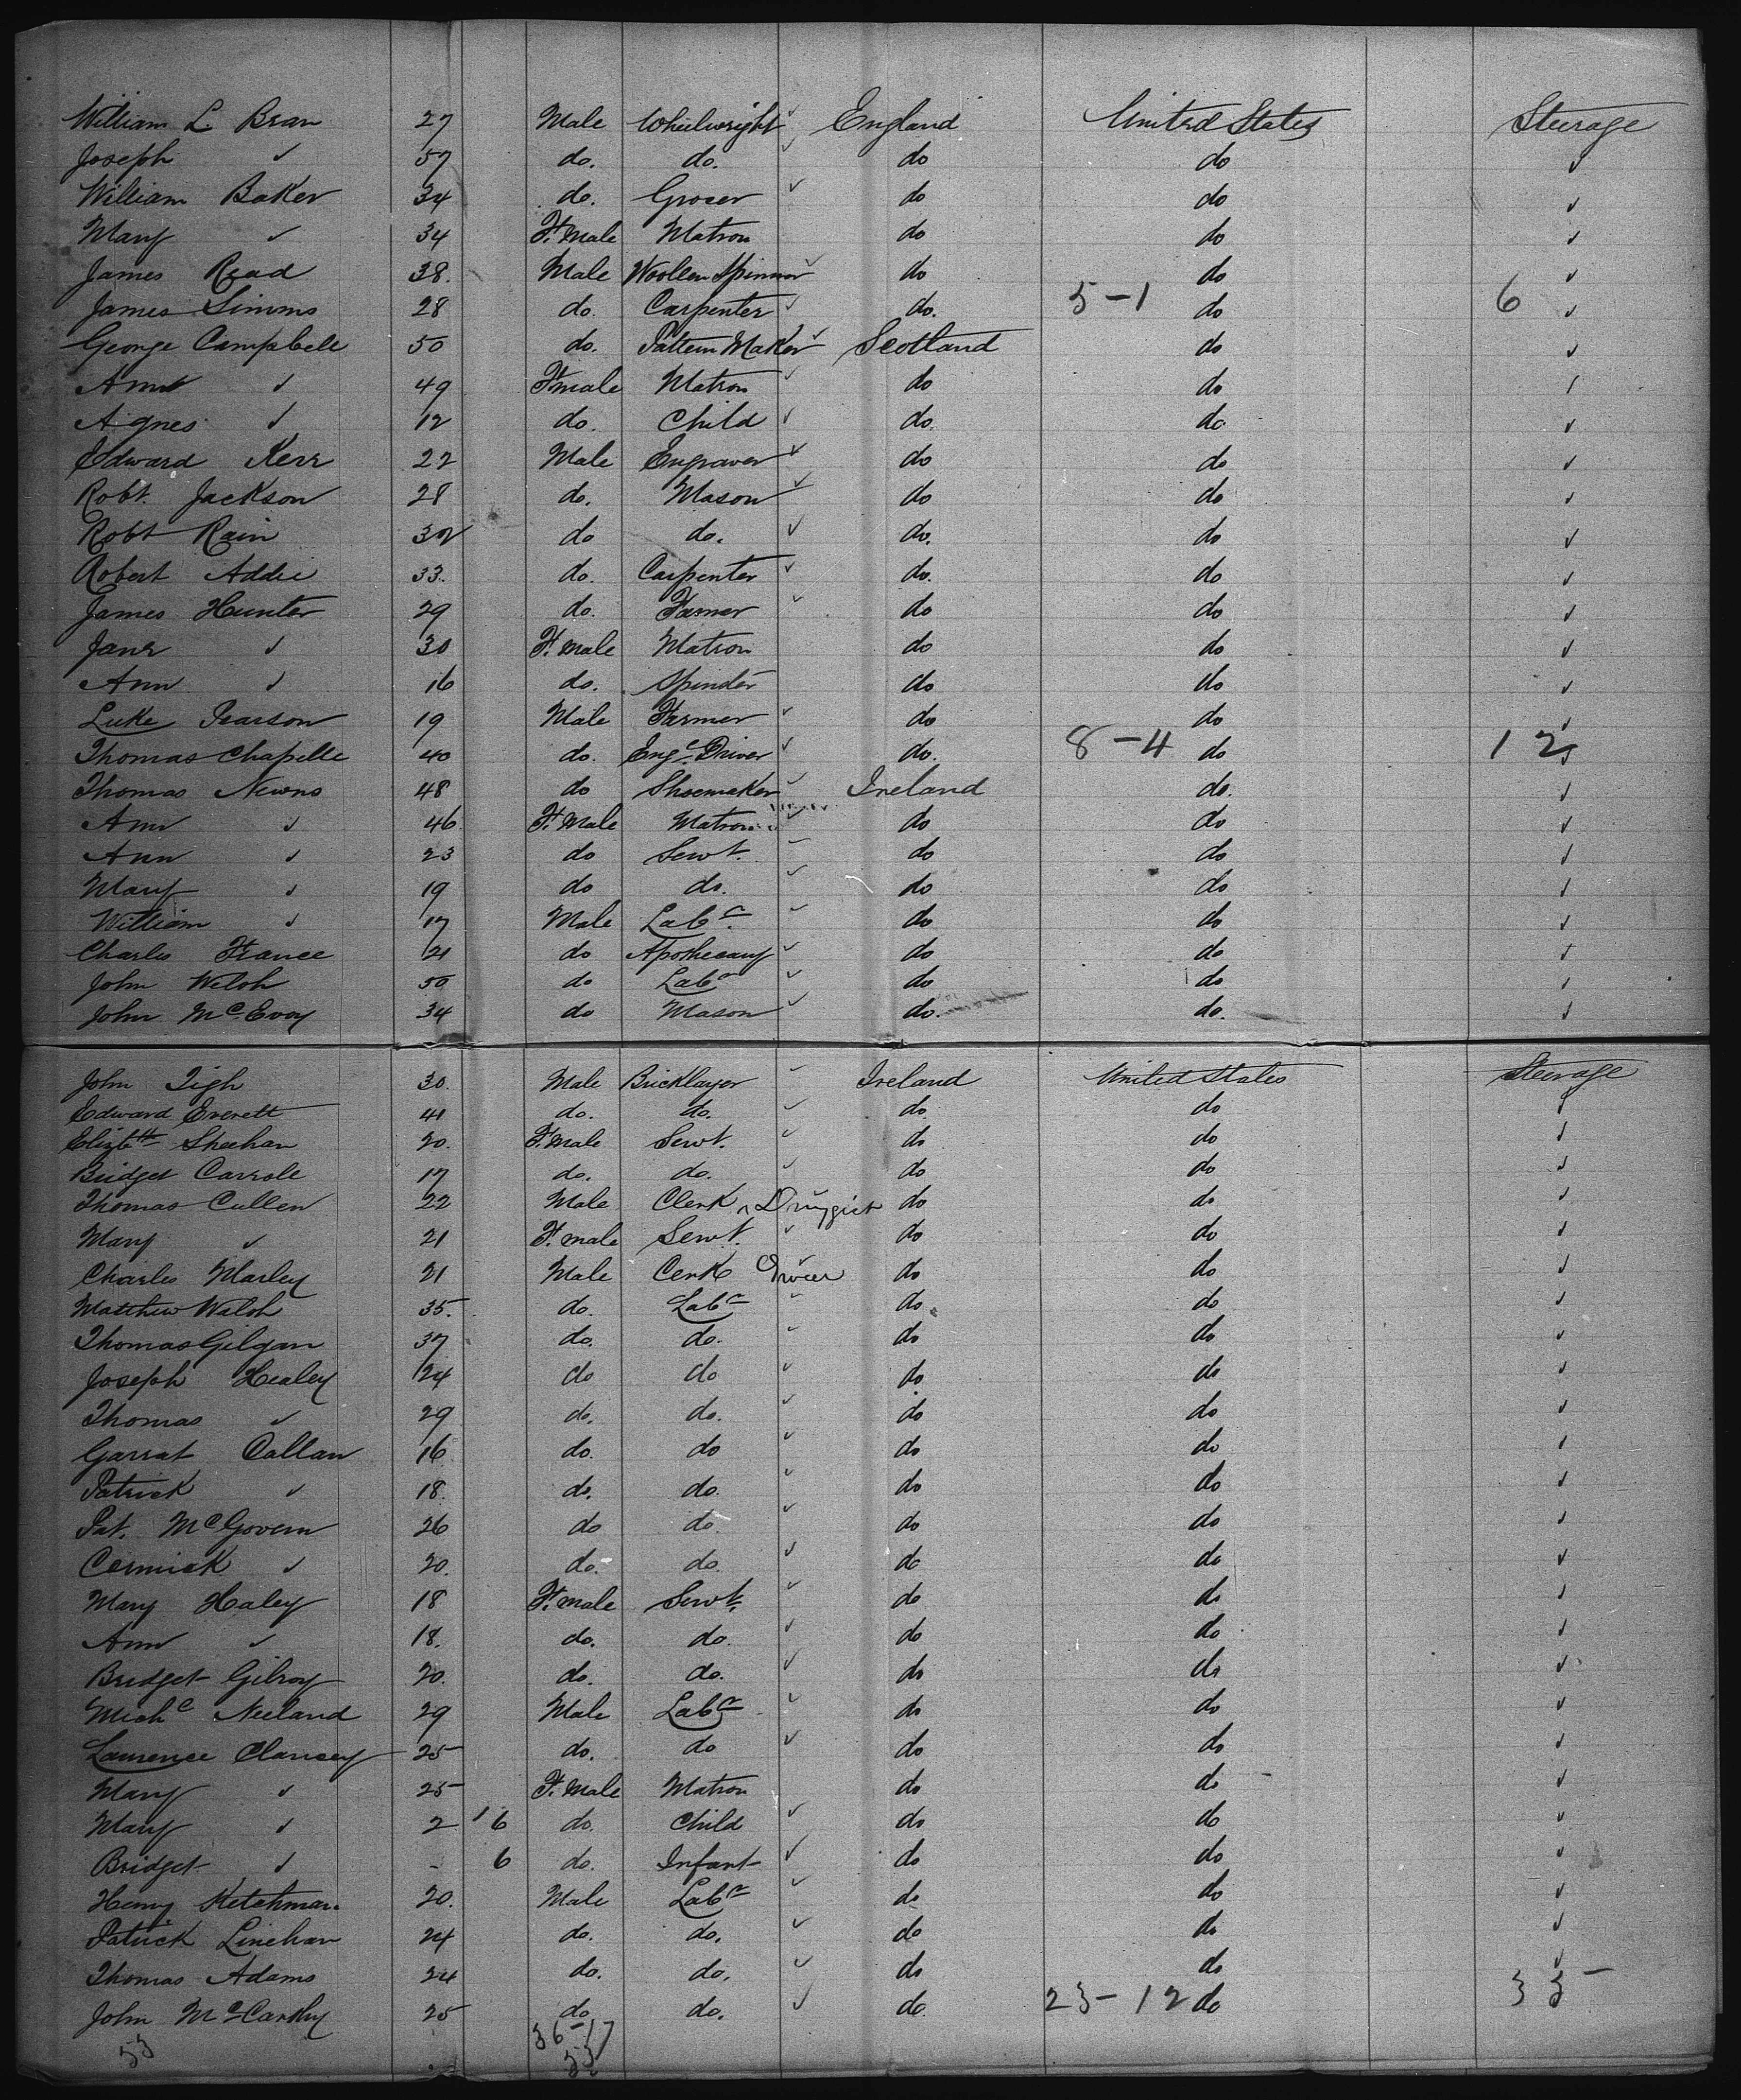 William L Bran 27 Male Wheelwright ✓ England United States Steerage
Joseph ✓ 57 do. do. ✓ do do ✓
William Baker 34 do. Grocer ✓ do do ✓
Mary ✓ 34 F. Male Matron do do ✓
James Read 38. Male Woollen Spinner ✓ do do ✓
James Simms 28 do. Carpenter ✓ do. 5-1 do 6 ✓
George Campbell 50 do. Pattern Maker ✓ Scotland do ✓
Ann ✓ 49 Female Matron ✓ do do ✓
Agnes ✓ 12 do. Child ✓ do. do ✓
Edward Kerr 22 Male Engraver ✓ do do ✓
Robt. Jackson 28 do. Mason ✓ do do ✓
Robt Rain 32 do do. ✓ do. do ✓
Robert Addie 33. do. Carpenter ✓ do. do ✓
James Hunter 29 do. Farmer ✓ do do ✓
Jane ✓ 30 F. Male Matron do do ✓
Ann ✓ 16 do. Spinster do do ✓
Luke Pearson 19 Male Farmer ✓ do do ✓
Thomas Chapelle 40 do. Enge. Driver ✓ do. 8-4 do 12 ✓
Thomas Newns 48 do Shoemaker ✓ Ireland do. ✓
Ann ✓ 46 F. Male Matron ✓ do do ✓
Ann ✓ 23 do Servt. ✓ do do ✓
Mary ✓ 19 do do. ✓ do do ✓
William ✓ 17 Male Labr. ✓ do do ✓
Charles France 21 do Apothecary ✓ do do ✓
John Welsh 50 do Labr ✓ do do ✓
John McEvoy 34 do Mason ✓ do. do. ✓
John Tigh 30. Male Bricklayer ✓ Ireland United States Steerage
Edward Everett 41 do. do. ✓ do do ✓
Elizbth Sheehan 20. F. Male Servt. ✓ do do ✓
Bridget Carrole 17 do. do. ✓ do do ✓
Thomas Cullen 22 Male Clerk Druggist do do ✓
Mary ✓ 21 F. male Servt. ✓ do do ✓
Charles Marley 21 Male Cerk Grocer do do ✓
Matthew Walsh 35. do. Labr ✓ do do ✓
Thomas Gilgan 37 do. do. ✓ do do ✓
Joseph Healey 24 do do ✓ do do ✓
Thomas ✓ 29 do. do. ✓ do do ✓
Garrat Callan 16 do. do ✓ do do ✓
Patrick ✓ 18. do. do. ✓ do do ✓
Pat. McGovern 26 do do ✓ do do ✓
Cormick ✓ 20. do. do. ✓ do do ✓
Mary Haley 18 F. male Servt. ✓ do do ✓
Ann ✓ 18. do. do. ✓ do do ✓
Bridget Gilroy 20. do. do. ✓ do do ✓
Michl Neeland 29 Male Labr ✓ do do ✓
Laurence Clancey 25 do. do ✓ do do ✓
Mary ✓ 25 F. Male Matron do do ✓
Mary ✓ 2 6 do. Child ✓ do do ✓
Bridget ✓ - 6 do. Infant ✓ do do ✓
Henry Ketchman. 20. Male Labr ✓ do do ✓
Patrick Linehan 24 do. do. ✓ do do ✓
Thomas Adams 24 do. do. ✓ do do ✓
John McCarthy 25 do do. ✓ do 23-12 do 35
53 36-17
53